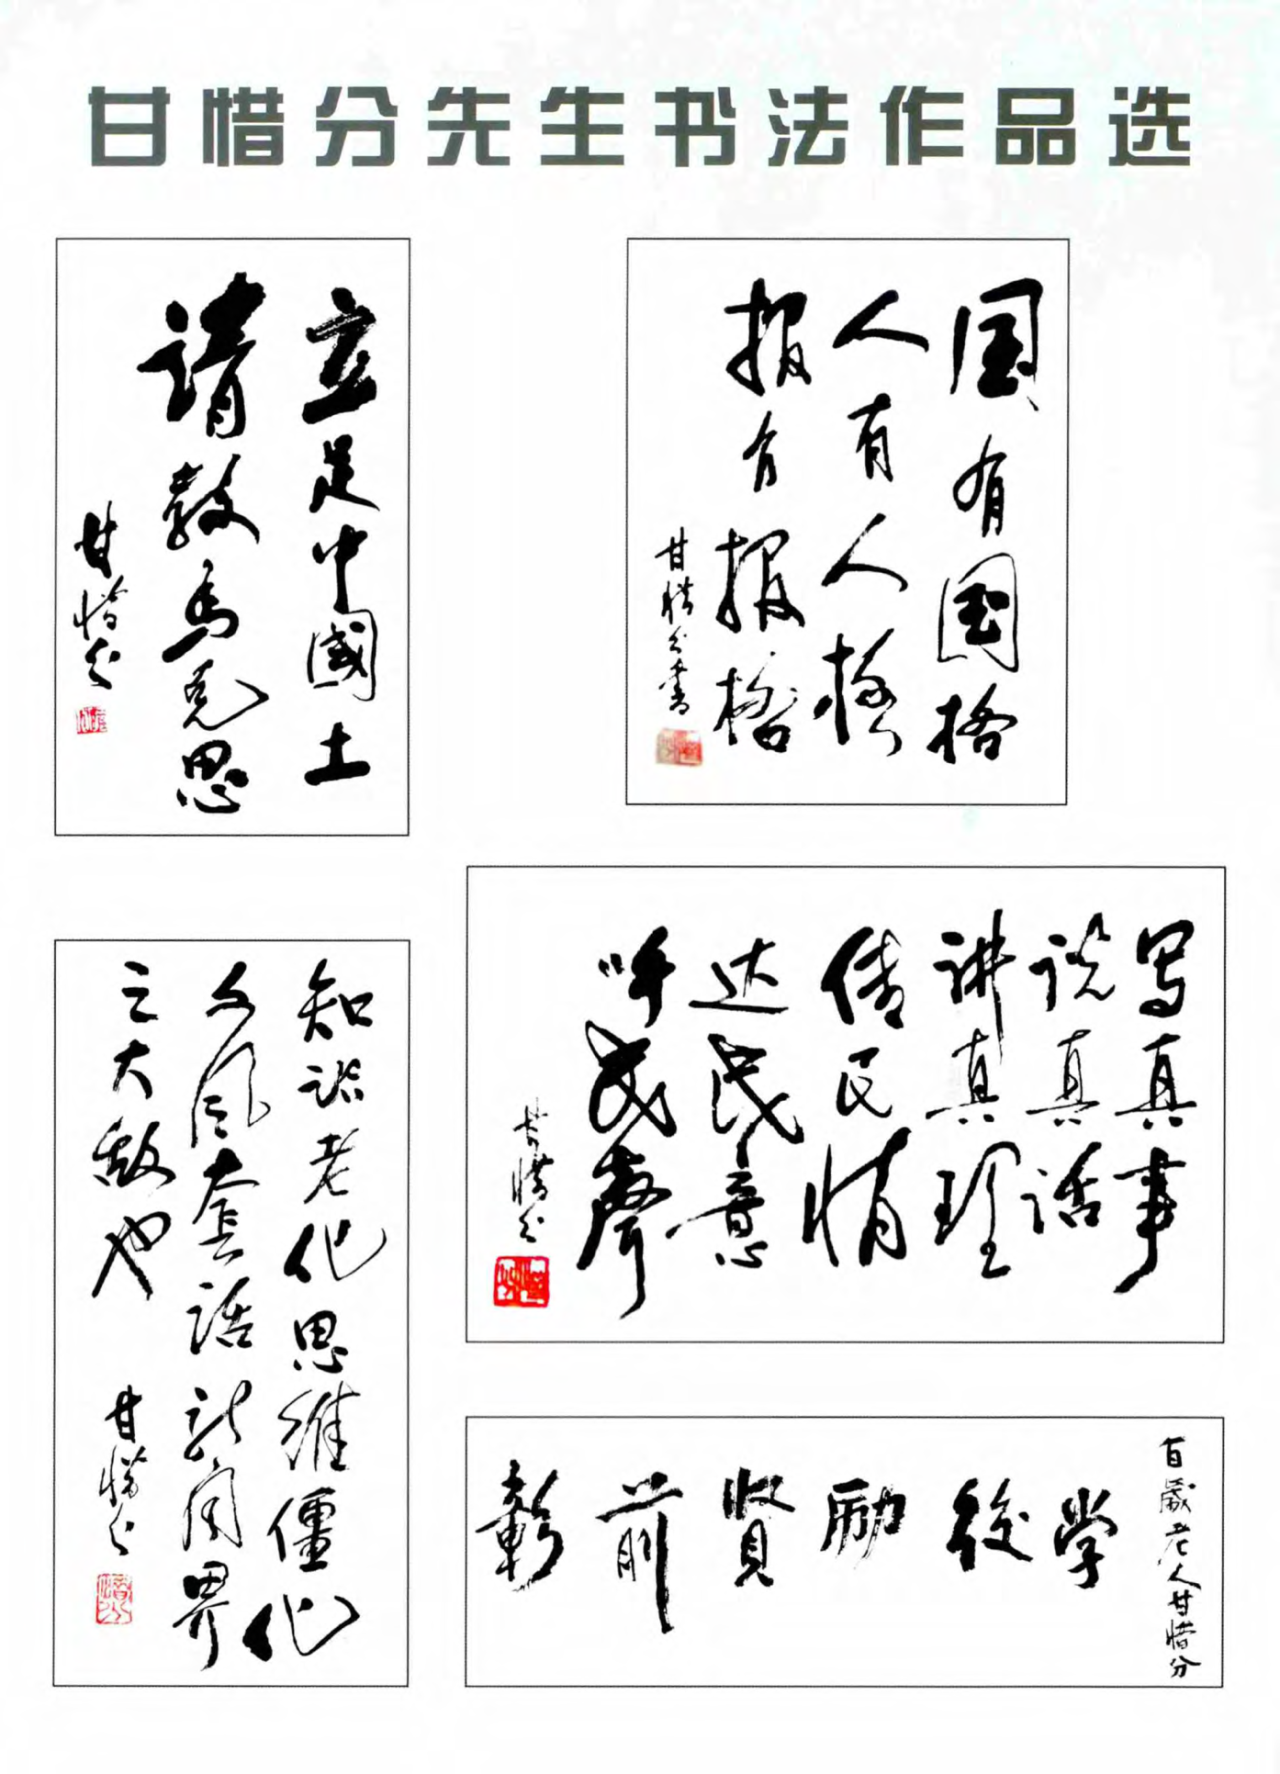 甘惜分先生书法作品选
立足中國土
请教马克思
甘惜分
国有国格
人有人格
报有报格
甘惜分書
写真事
说真话
讲真理
传民情
达民意
呼民聲
甘惜分
知识老化思维僵化
文风套话新闻界
之大敌也
甘惜分
彰前贤励後学
百歲老人甘惜分